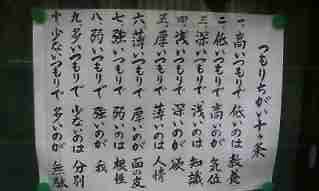 つもりちがい十ヶ条
一、高いつもりで 低いのは 教養
二、低いつもりで 高いのが 気位
三、深いつもりで 浅いのは 知識
四、浅いつもりで 深いのが 欲
五、厚いつもりで 薄いのは 人情
六、薄いつもりで 厚いのが 面の皮
七、強いつもりで 弱いのは 根性
八、弱いつもりで 強いのが 我
九、多いつもりで 少ないのは 分別
十、少ないつもりで 多いのが 無駄